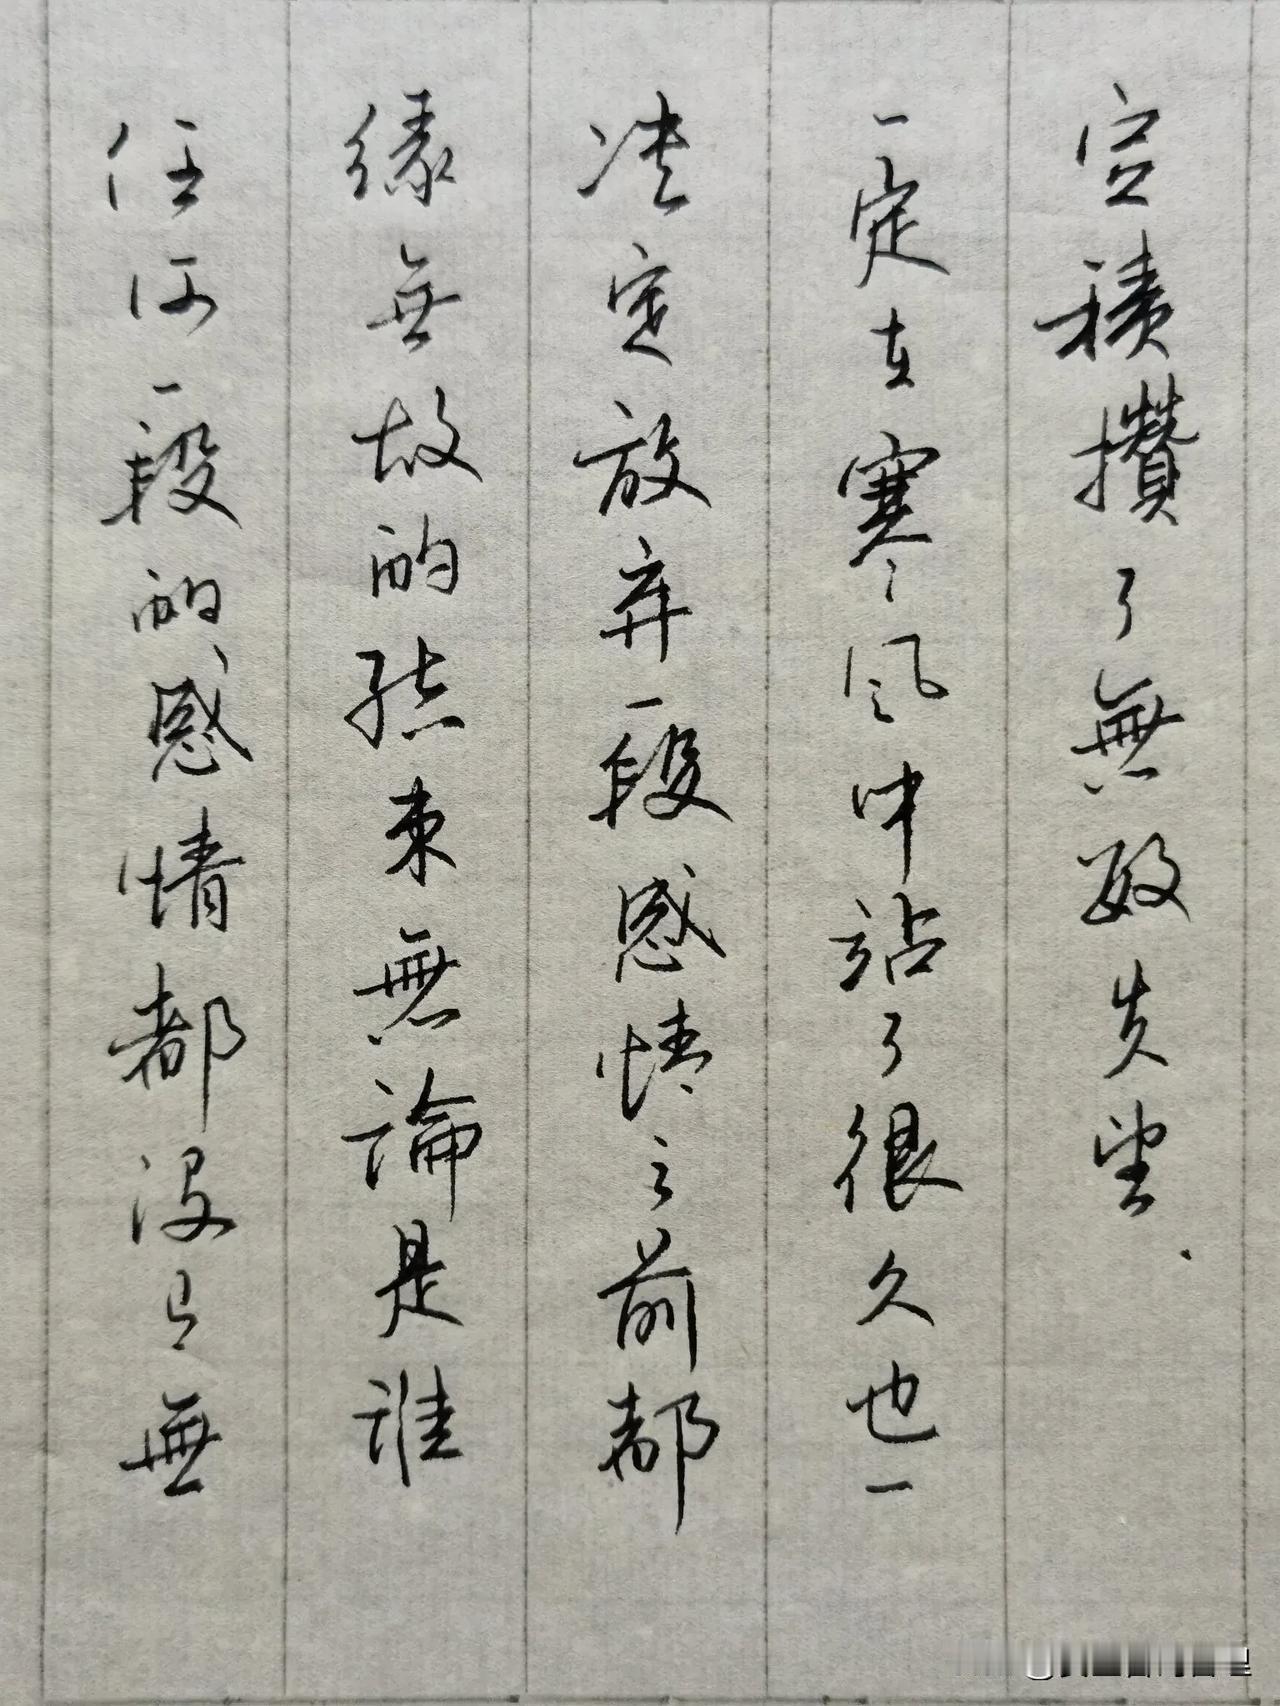 任何一段的感情都没有無
缘無故的结束無論是誰
决定放弃一段感情之前都
一定在寒风中站了很久也一
定積攢了無数失望.